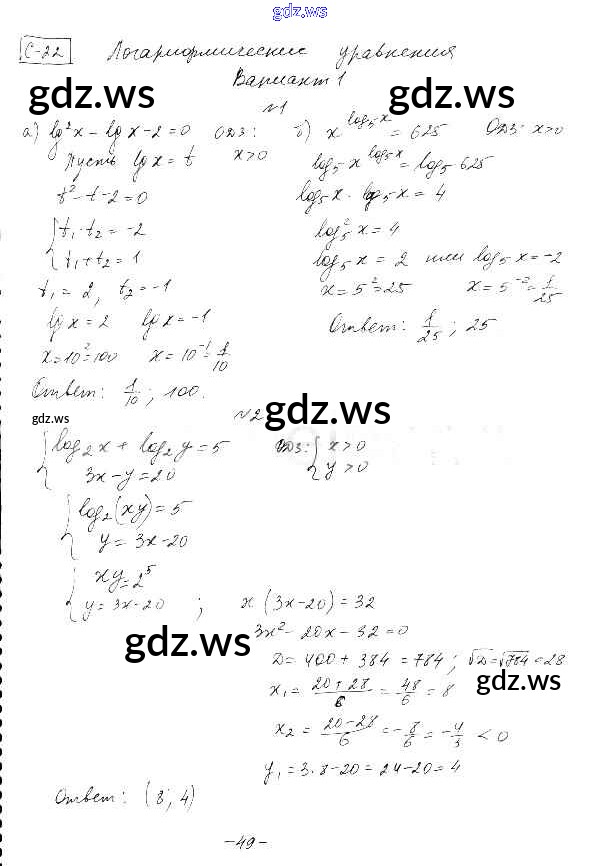 gdz.ws
С-22 Логарифмические уравнения
Вариант 1
gdz.ws gdz.ws
№1
а) lg²x – lg x – 2 = 0 ОДЗ: x>0
Пусть lg x = t
t² – t – 2 = 0
{ t₁·t₂ = –2
t₁+t₂ = 1
t₁ = 2, t₂ = –1
lg x = 2 lg x = –1
x = 10² = 100 x = 10⁻¹ = 1/10
Ответ: 1/10; 100.
б) x^(log₅x) = 625 ОДЗ: x>0
log₅ x^(log₅x) = log₅ 625
log₅x · log₅x = 4
log₅²x = 4
log₅x = 2 или log₅x = –2
x = 5² = 25 x = 5⁻² = 1/25
Ответ: 1/25; 25
gdz.ws gdz.ws
№2
{ log₂x + log₂y = 5 ОДЗ: { x>0
3x – y = 20 y>0
{ log₂(xy) = 5
y = 3x – 20
{ xy = 2⁵
y = 3x – 20 ; x(3x – 20) = 32
3x² – 20x – 32 = 0
gdz.ws
D = 400 + 384 = 784; √D = √784 = 28
gdz.ws
x₁ = (20+28)/6 = 48/6 = 8
x₂ = (20–28)/6 = –8/6 = –4/3 < 0
y₁ = 3·8–20 = 24–20 = 4
Ответ: (8; 4)
–49–